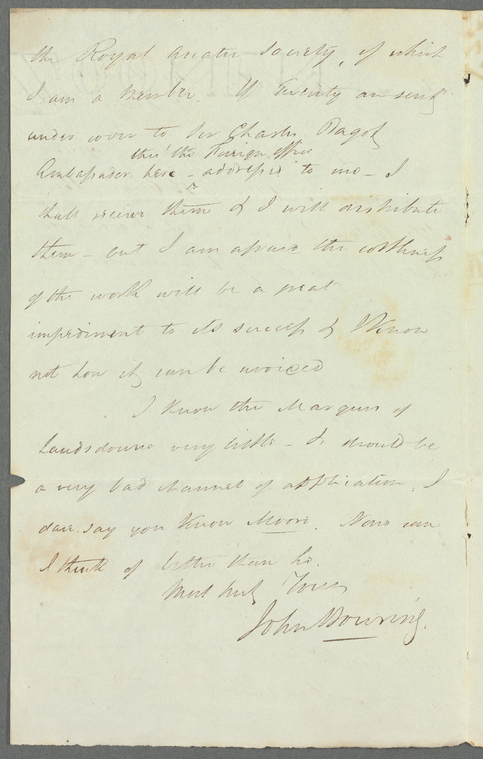 the Royal Asiatic Society, of which
I am a Member. If Twenty are sent
under cover to Sir Charles Bagot
thro' the Foreign Office
Ambassador here – addressed to me – I
shall receive them & I will distribute
them – but I am afraid the costliness
of the work will be a great
impediment to its success & I know
not how it can be avoided
I know the Marquis of
Landsdowne very little – I should be
a very bad channel of application. I
dare say you know Moore. None can
I think of better than he.
Most truly Yours
John Bowring.